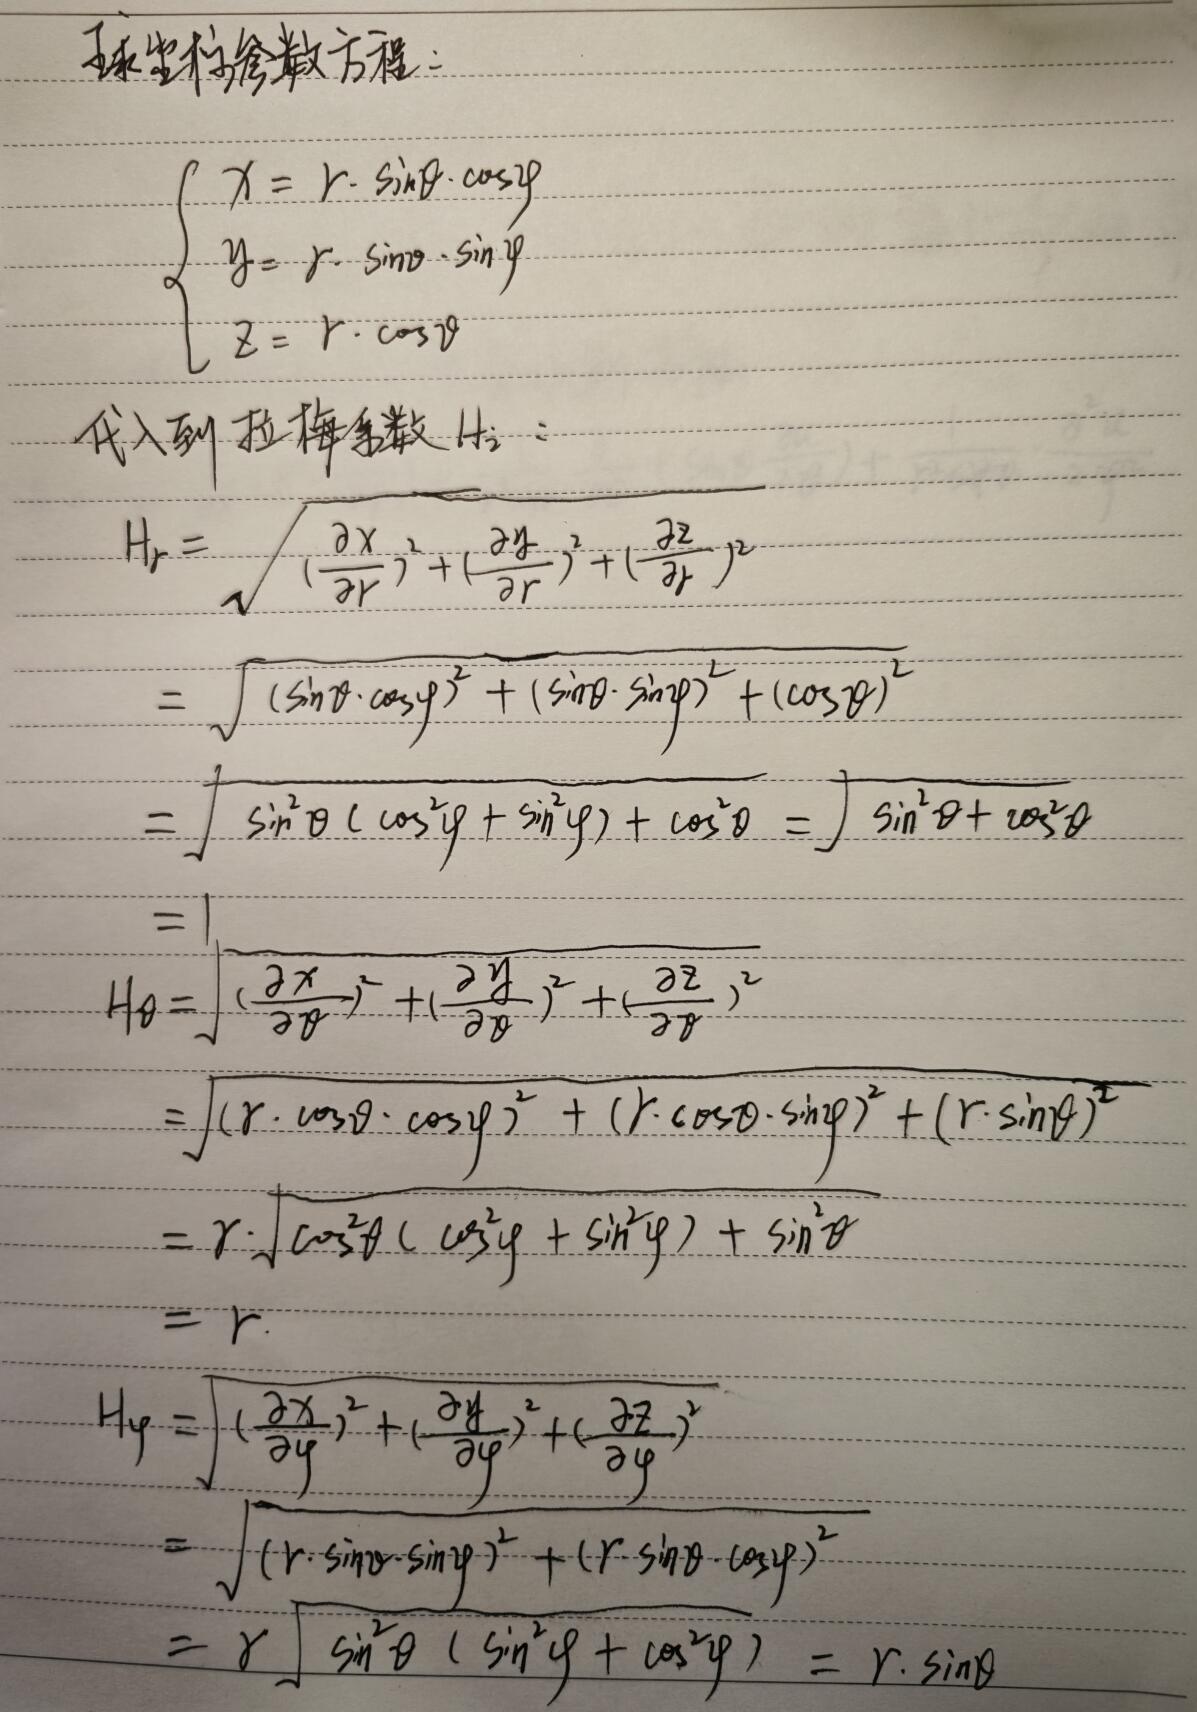 球坐标参数方程：
x = r · sinθ · cosφ
y = r · sinθ · sinφ
z = r · cosθ
代入到拉梅系数 Hᵢ：
Hᵣ = √((∂x/∂r)² + (∂y/∂r)² + (∂z/∂r)²)
= √((sinθ · cosφ)² + (sinθ · sinφ)² + (cosθ)²)
= √(sin²θ (cos²φ + sin²φ) + cos²θ) = √(sin²θ + cos²θ)
= 1
H_θ = √((∂x/∂θ)² + (∂y/∂θ)² + (∂z/∂θ)²)
= √((r · cosθ · cosφ)² + (r · cosθ · sinφ)² + (r · sinθ)²)
= r · √(cos²θ (cos²φ + sin²φ) + sin²θ)
= r.
H_φ = √((∂x/∂φ)² + (∂y/∂φ)² + (∂z/∂φ)²)
= √((r · sinθ · sinφ)² + (r · sinθ · cosφ)²)
= r √(sin²θ (sin²φ + cos²φ)) = r · sinθ